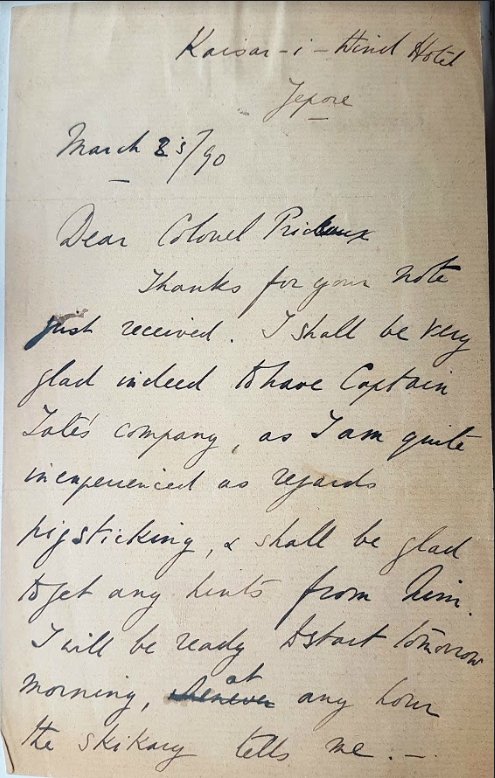 Kaisar-i-Hind Hotel
Jepore
March 23/90
Dear Colonel Prideaux
Thanks for your note
just received. I shall be very
glad indeed to have Captain
Tate's company, as I am quite
inexperienced as regards
pigsticking, & shall be glad
to get any hints from him.
I will be ready to start tomorrow
morning, at any hour
the skikary tells me. -